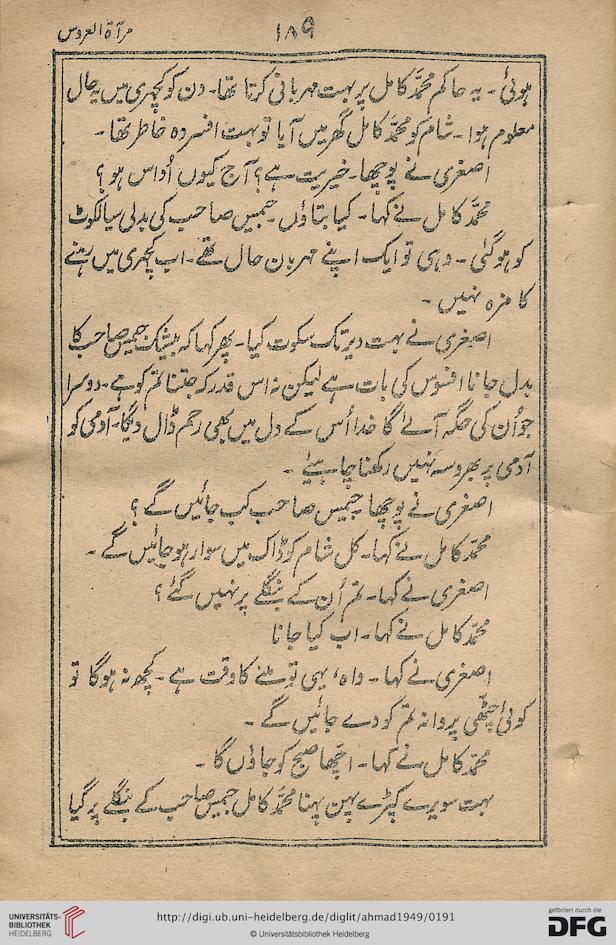 مرآۃ العروس
۱۸۹
ہوئی۔ یہ حاکم محمّد کامل پر بہت مہربانی کرتا تھا۔ دن کو کچہری میں یہ حال
معلوم ہوا۔ شام کو محمّد کامل گھر میں آیا تو بہت افسردہ خاطر تھا۔
اصغری نے پوچھا۔ خیریت ہے؟ آج کیوں اُداس ہو؟
محمّد کامل نے کہا۔ کیا بتاؤں۔ جیمس صاحب کی بدلی سیالکوٹ
کو ہوگئی۔ وہی تو ایک اپنے مہربان حال تھے۔ اب کچہری میں رہنے
کا مزہ نہیں۔
اصغری نے بہت دیر تک سکوت کیا۔ پھر کہا کہ بیشک جیمس صاحب کا
بدل جانا افسوس کی بات ہے لیکن نہ اس قدر کہ جتنا تم کو ہے۔ دوسرا
جو اُن کی جگہ آئے گا خدا اُس کے دل میں بھی رحم ڈال دیگا۔ آدمی کو
آدمی پر بھروسہ نہیں رکھنا چاہیئے۔
اصغری نے پوچھا۔ جیمس صاحب کب جائیں گے؟
محمّد کامل نے کہا۔ کل شام کو ڈاک میں سوار ہو جائیں گے۔
اصغری نے کہا۔ تم اُن کے بنگلے پر نہیں گئے؟
محمّد کامل نے کہا۔ اب کیا جانا
اصغری نے کہا۔ واہ، یہی تو ملنے کا وقت ہے۔ کچھ نہ ہوگا تو
کوئی چٹھّی پروانہ تم کو دے جائیں گے۔
محمّد کامل نے کہا۔ اچّھا صبح کو جاؤں گا۔
بہت سویرے کپڑے پہن پہنا محمّد کامل جیمس صاحب کے بنگلے پر گیا
UNIVERSITÄTS-
BIBLIOTHEK
HEIDELBERG
http://digi.ub.uni-heidelberg.de/diglit/ahmad1949/0191
© Universitätsbibliothek Heidelberg
gefördert durch die
DFG